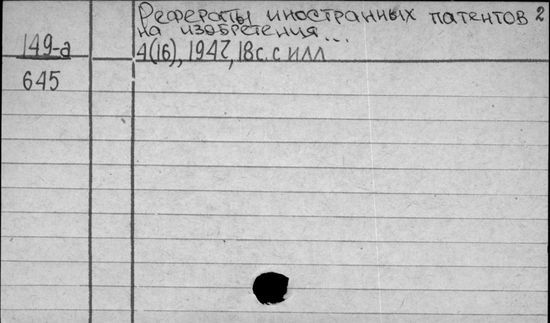 Рефераты иностранных патентов 2
на изобретения...
149-а
4(16), 1947, 18с. с илл
645